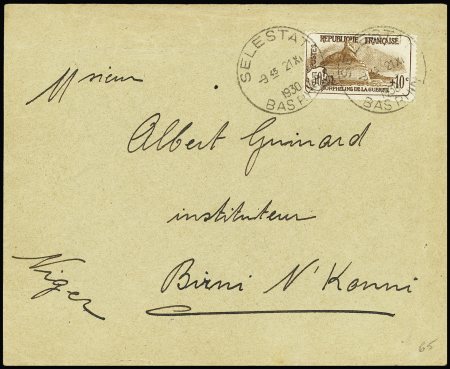 SELESTAT
9 45 21 XI
1930
BAS RHIN
RÉPUBLIQUE FRANÇAISE
POSTES
50c +10c
ORPHELINS DE LA GUERRE
21 XI
BAS RHIN
Msieur
Albert Guinard
instituteur
Niger
Birni N'Konni
65